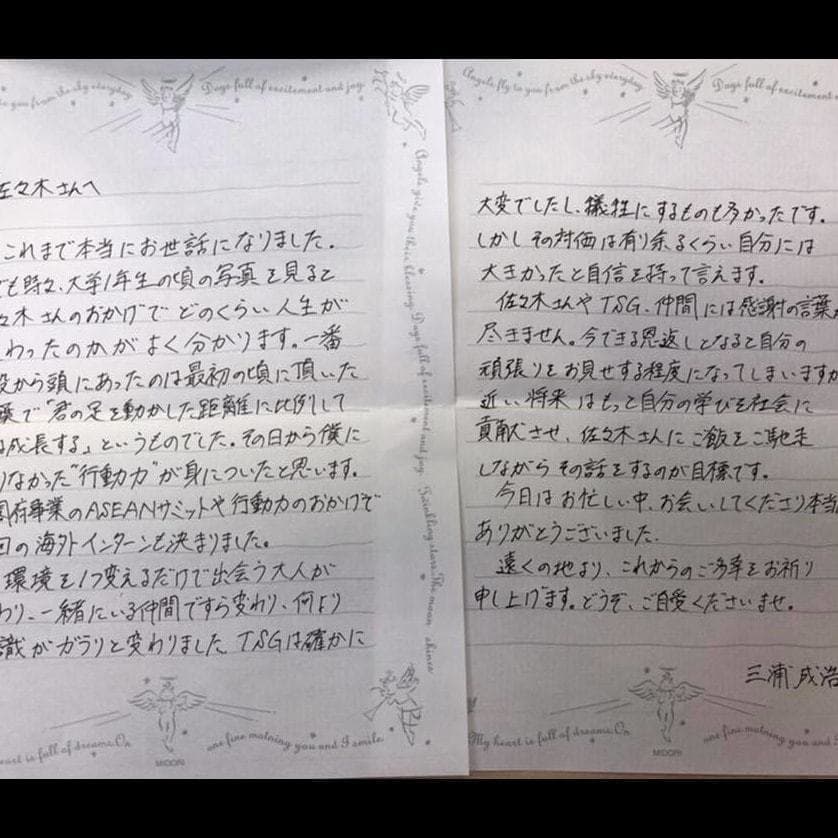 to you from the sky everyday.
Days full of excitement and joy.
佐々木さんへ
これまで本当にお世話になりました。
も時々、大学1年生の頃の写真を見ると
々木さんのおかげでどのくらい人生が
わったのかがよく分かります。一番
から頭にあったのは最初の頃に頂いた
で「君の足を動かした距離に比例して
は成長する」というものでした。その日から僕に
りなかった"行動力"が身についたと思います。
府事業のASEANサミットや行動力のおかげで
回の海外インターンも決まりました。
環境を1つ変えるだけで出会う大人が
わり、一緒にいる仲間ですら変わり、何より
識がガラリと変わりました。TSGは確かに
heart is full of dreams. On
one fine morning you and I smile.
MIDORI
Angels give you their blessing. Days full of excitement and joy. Twinkling stars. The moon shines
Angels fly to you from the sky everyday.
Days full of excitement
大変でしたし、犠牲にするものも多かったです。
しかしその対価は有り余るくらい自分には
大きかったと自信を持って言えます。
佐々木さんやTSG、仲間には感謝の言葉が
尽きません。今できる恩返しとなると自分の
頑張りをお見せする程度になってしまいますが
近い将来はもっと自分の学びを社会に
貢献させ、佐々木さんにご飯をご馳走
しながらその話をするのが目標です。
今日はお忙しい中、お会いしてくださり本当
ありがとうございました。
遠くの地より、これからのご多幸をお祈り
申し上げます。どうぞ、ご自愛くださいませ。
三浦成浩
My heart is full of dreams. On
one fine morning you and
MIDORI